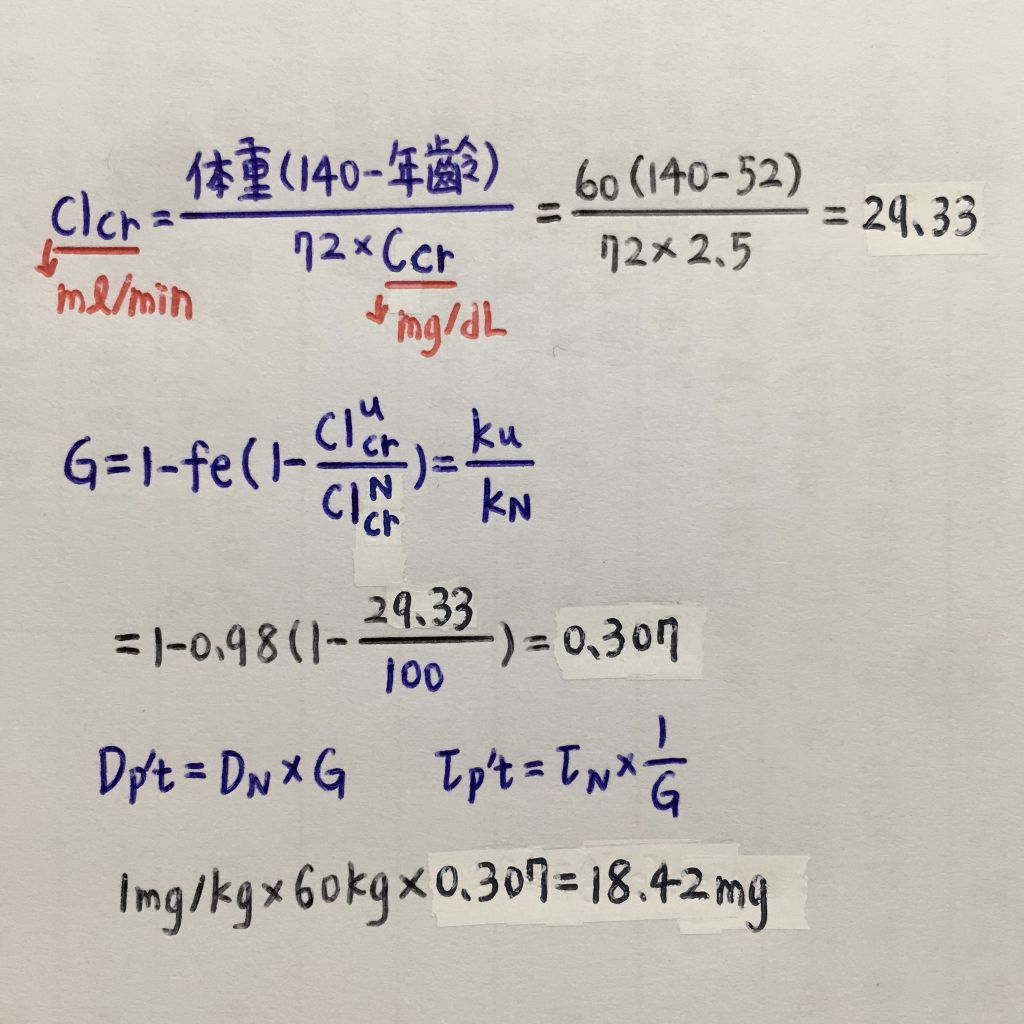 Clcr = 体重(140-年齢) / 72×Ccr = 60(140-52) / 72×2.5 = 29.33
ml/min
mg/dL
G=1-fe(1- Cl^u_cr / Cl^N_cr )= ku / kN
=1-0.98(1- 29.33 / 100 )=0.307
Dp't = DN × G τp't = τN × 1 / G
1mg/kg×60kg×0.307=18.42mg